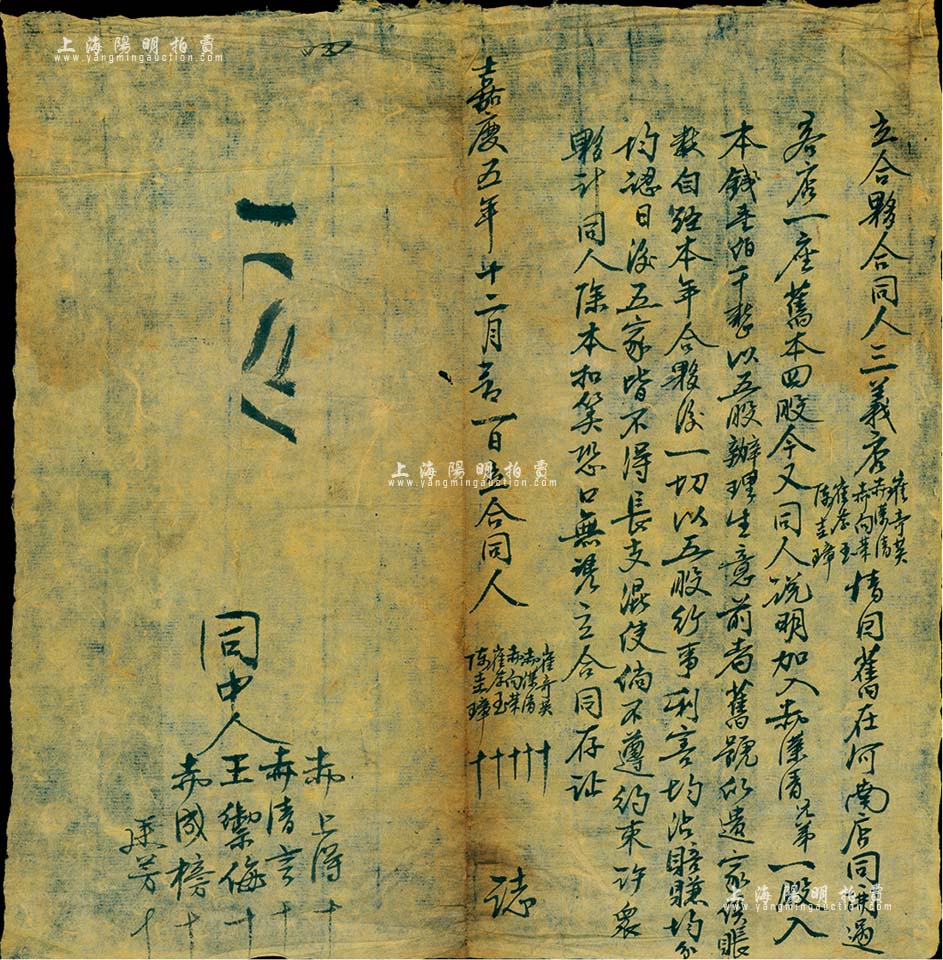 上海陽明拍賣
www.yangmingauction.com
立合夥合同人三義店崔奇英 赤漢清 赤向荣 崔 玉 陳圭璋情因舊在河南店同開過
客店一座舊本四股今又同人说明加入赤漢清兄弟一股入
本錢壹伯千整以五股辦理生意前者舊號所遺家俱賬
数自經本年合夥後一切以五股行事利害均沾賠賺均分
均認日後五家皆不得長支混使倘不遵約束許眾
夥計同人除本扣算恐口無憑立合同存証
嘉慶五年十二月 日立合同人 崔奇英十 赤漢清十 赤向荣十 崔 玉十 陳圭璋十 誌
同中人
赤上得十
赤清言十
王禦侮十
赤成榜十
芳十
上海陽明拍賣
www.yangmingauction.com
上海陽明拍賣
www.yangmingauction.com